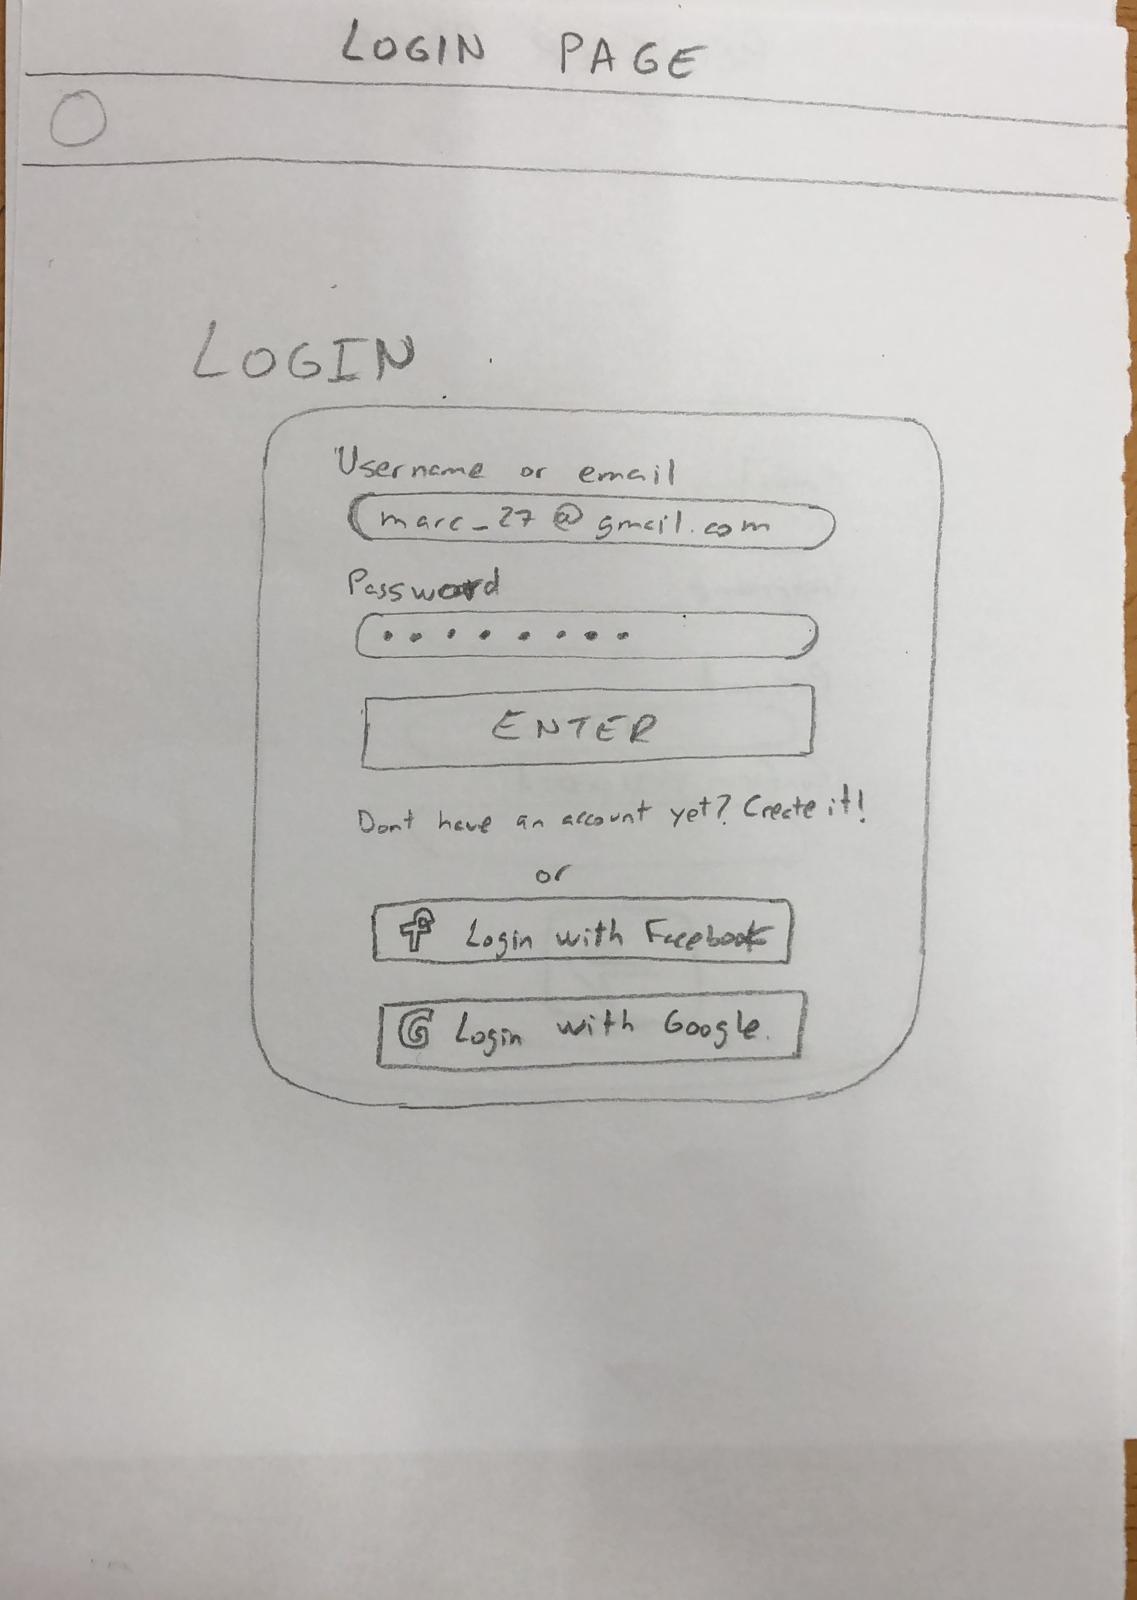 LOGIN PAGE
LOGIN
Username or email
marc_27@gmail.com
Password
ENTER
Dont have an account yet? Create it!
or
f Login with Facebook
G Login with Google.